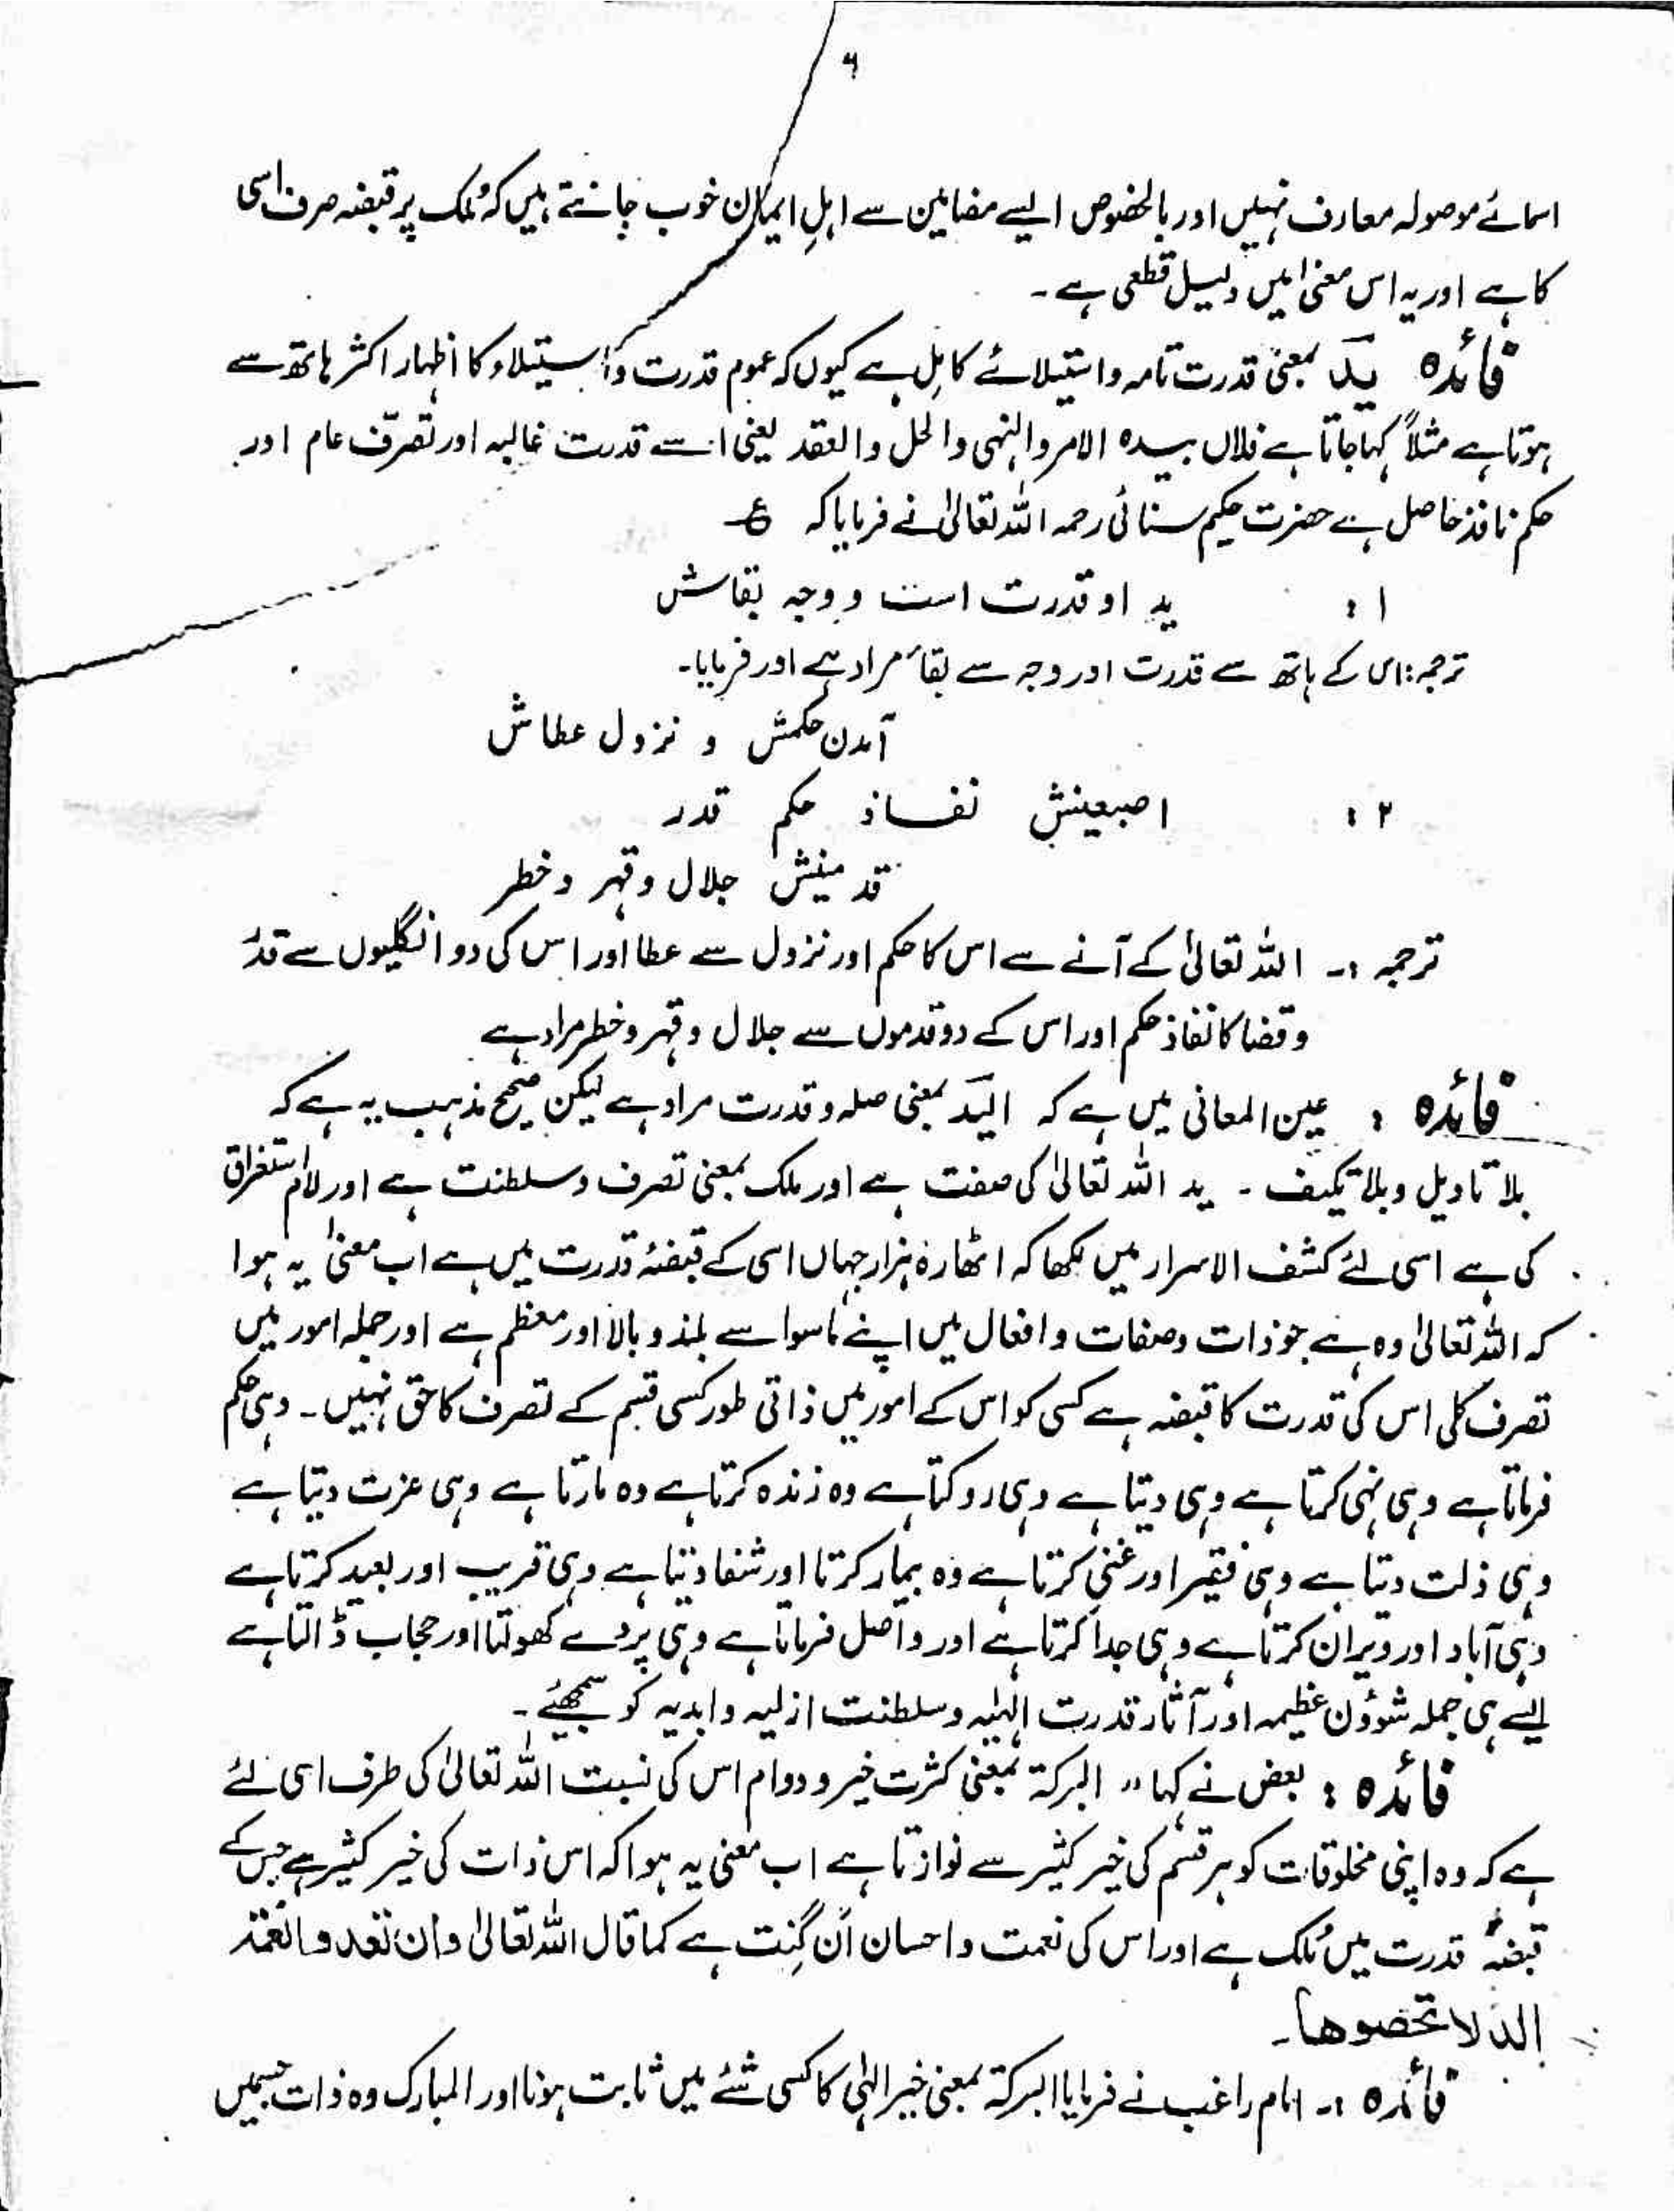 ۶
اسمائے موصولہ معارف نہیں اور بالخصوص ایسے مضامین سے اہلِ ایمان خوب جانتے ہیں کہ مُلک پر قبضہ صرف اسی
کا ہے اور یہ اس معنیٰ میں دلیل قطعی ہے۔
فائدہ یَد بمعنی قدرت تامہ و استیلائے کامل ہے کیوں کہ عموم قدرت و استیلاء کا اظہار اکثر ہاتھ سے
ہوتا ہے مثلاً کہا جاتا ہے فلاں بیدہ الامر والنہی والحل والعقد یعنی اسے قدرت غالبہ اور تصرّف عام اور
حکم نافذ حاصل ہے حضرت حکیم سنائی رحمہ اللہ تعالیٰ نے فرمایا کہ ؏
۱: ید او قدرت است و وجہ بقاش
ترجمہ: اس کے ہاتھ سے قدرت اور وجہ سے بقاء مراد ہے اور فرمایا۔
آمدن حکمش و نزول عطاش
۲: اصبعینش نفاذ حکم قدر
قدمینش جلال و قہر و خطر
ترجمہ :۔ اللہ تعالیٰ کے آنے سے اس کا حکم اور نزول سے عطا اور اس کی دو انگلیوں سے قدر
و قضا کا نفاذ حکم اور اس کے دو قدموں سے جلال و قہر و خطر مراد ہے
فائدہ : عین المعانی میں ہے کہ الیَد بمعنی صلہ و قدرت مراد ہے لیکن صحیح مذہب یہ ہے کہ
بلا تاویل و بلا تکیف ۔ ید اللہ تعالیٰ کی صفت ہے اور ملک بمعنی تصرف و سلطنت ہے اور لام استغراق
کی ہے اسی لئے کشف الاسرار میں لکھا کہ اٹھارہ ہزار جہاں اسی کے قبضۂ قدرت میں ہے اب معنیٰ یہ ہوا
کہ اللہ تعالیٰ وہ ہے جو ذات و صفات و افعال میں اپنے ماسوا سے بلند و بالا اور معظم ہے اور جملہ امور میں
تصرف کلی اس کی قدرت کا قبضہ ہے کسی کو اس کے امور میں ذاتی طور کسی قسم کے تصرف کا حق نہیں۔ وہی حکم
فرماتا ہے وہی نہی کرتا ہے وہی دیتا ہے وہی روکتا ہے وہ زندہ کرتا ہے وہ مارتا ہے وہی عزت دیتا ہے
وہی ذلت دیتا ہے وہی فقیر اور غنی کرتا ہے وہ بیمار کرتا اور شفا دیتا ہے وہی قریب اور بعید کرتا ہے
وہی آباد اور ویران کرتا ہے وہی جدا کرتا ہے اور واصل فرماتا ہے وہی پردے کھولتا اور حجاب ڈالتا ہے
ایسے ہی جملہ شوؤن عظیمہ اور آثار قدرت الٰہیہ و سلطنت ازلیہ و ابدیہ کو سمجھیئے۔
فائدہ : بعض نے کہا ،، البرکۃ بمعنی کثرت خیر و دوام اس کی نسبت اللہ تعالیٰ کی طرف اسی لئے
ہے کہ وہ اپنی مخلوقات کو ہر قسم کی خیر کثیر سے نوازتا ہے اب معنی یہ ہوا کہ اس ذات کی خیر کثیر ہے جس کے
قبضۂ قدرت میں مُلک ہے اور اس کی نعمت و احسان اَن گِنت ہے کما قال اللہ تعالیٰ وان تعدوا نعمۃ
اللہ لا تحصوھا۔
فائدہ :۔ امام راغب نے فرمایا البرکۃ بمعنی خیر الٰہی کا کسی شئے میں ثابت ہونا اور المبارک وہ ذات جسمیں